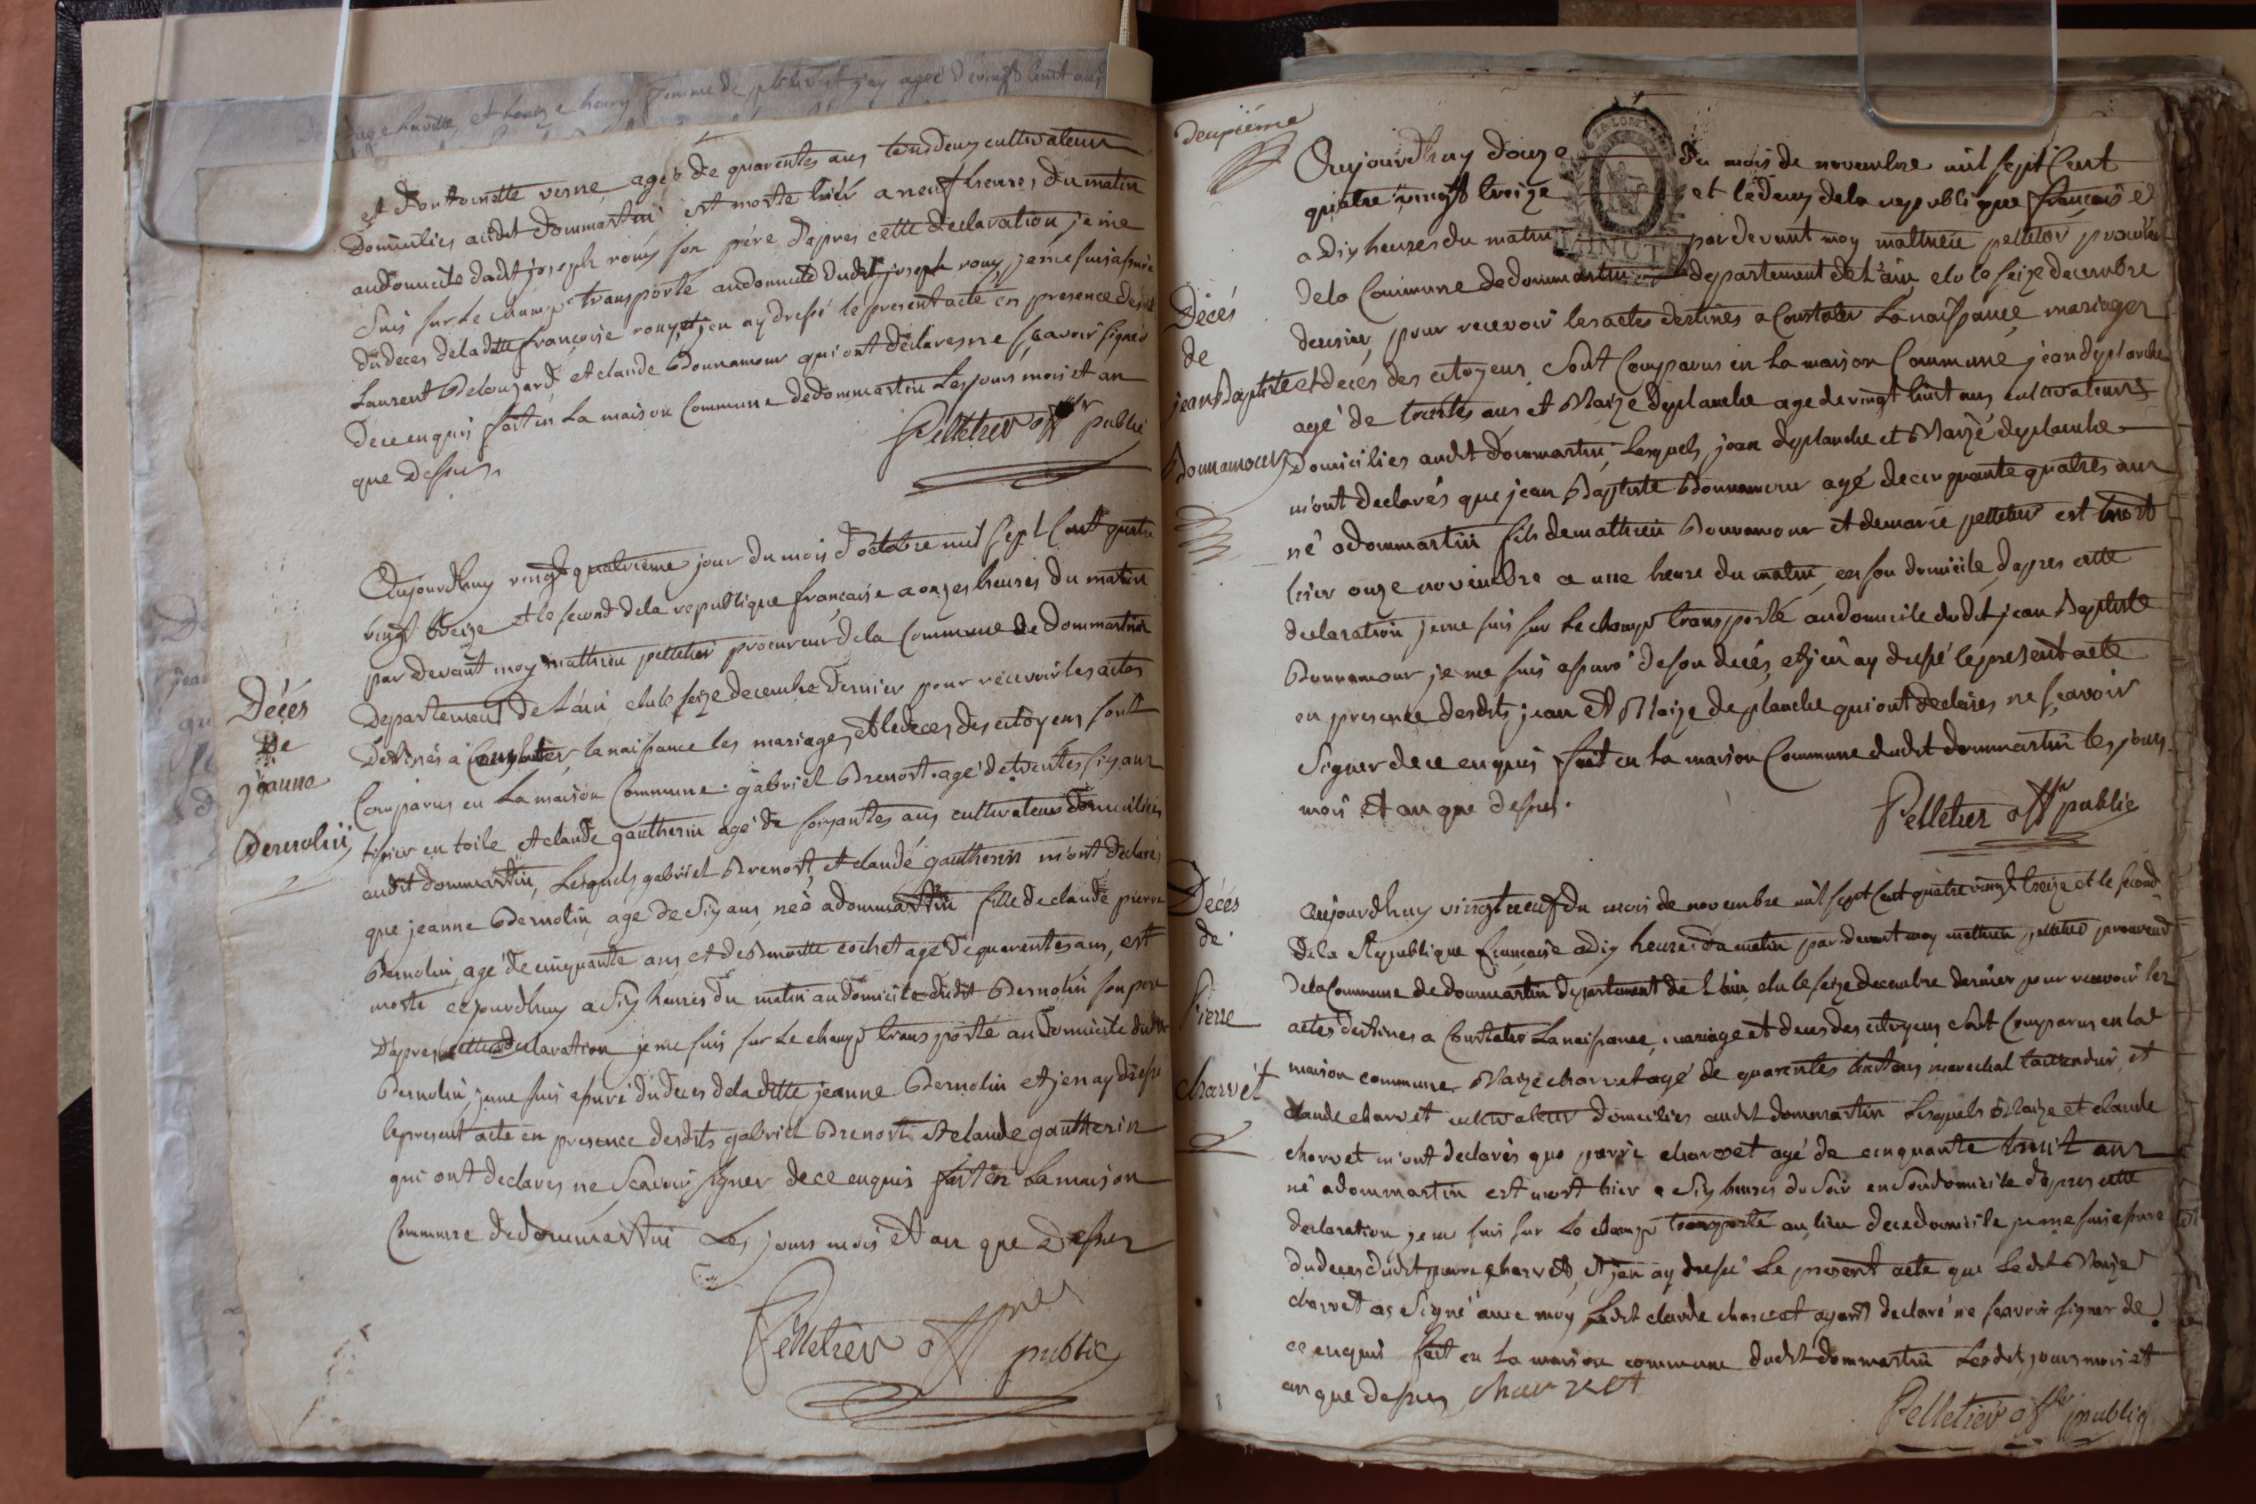 et d'antoinette verne agés de quarentes ans tous deux cultivateurs
Domicilies audit dommartin est morte hier a neuf heures du matin
audomicile dudit joseph rouy son père, d'apres cette declaration je me
suis sur le champ transporté audomicile dudit joseph rouy, je me suis assuré
du deces de laditte françoise rouy, et j'en ay dressé le present acte en presence desdits
Laurent Belouzard et claude Bonnamour qui ont déclarés ne sçavoir signer
de ce enquis fait en la maison Commune de dommartin les jours mois et an
que dessus.
Pelletier off.er public
Aujourdhuy vingt quatrieme jour du mois d'octobre mil sept Cent quatre
vingt treize et le second de la republique française a onzes heures du matin
par devant moy mathieu pelletier procureur de la Commune de Dommartin
Departement de l'ain elu le seize decembre dernier pour recevoir les actes
Déces
de
jeanne
Bernolin
Destinés a Constater la naissance les mariages, et le deces des citoyens sont
Comparus en la maison Commune. gabriel Brenost agé de trentes six ans
tissier en toile et claude gautherin agé de soixantes ans cultivateurs domicilies
audit dommartin, Lesquels gabriel Brenost, et claude gautherin m'ont déclarés
que jeanne Bernolin age de six ans, néé a dommartin fille de claude pierre
Bernolin agé de cinquante ans et de Benoitte cochet agé de quarentes ans, est
morte cejourdhuy a six heures du matin au domicile dudit Bernolin son pere
D'apres cette declaration je me suis sur le champ transporté au domicile dudit
Bernolin, je me suis assuré du deces de laditte jeanne Bernolin et j'en ay dressé
le present acte en presence desdits gabriel Brenost, et claude gautherin
qui ont declarés ne sçavoir signer de ce enquis fait en la maison
Commune de dommartin Les jours mois et an que dessus
Pelletier off.er
public
deuxiéme
Aujourdhuy douze du mois de novembre mil sept Cent
quatre vingt treize et le deux de la republique françaisé
a dix heures du matin par devant moy mathieu pelletier procureur
MINUTE
de la Commune de dommartin departement de l'ain elu le seize decembre
dernier, pour recevoir les actes destinés a Constater la naissance mariages
Décés
de
jean Baptiste
Bonnamour
et decés des citoyens, sont Comparus en la maison Commune jean dyplanche
agé de trentes ans et Blaize dyplanche age de vingt huit ans cultivateurs
Domicilies audit dommartin, Lesquels jean dyplanche et Blaizé deplanche
m'ont declarés que jean Baptiste Bonnamour agé de cinquante quatres ans
né a dommartin fils de mathieu Bonnamour et de marie pelletier est mort
hier onze novembre a une heure du matin, en son domicile, d'apres cette
declaration je me suis sur le champ transporté au domicile dudit jean Baptiste
Bonnamour, je me suis assuré de son décés, et j'en ay dressé le present acte
en presence desdits jean et Blaize deplanche qui ont declarés ne sçavoir
signer de ce enquis fait en la maison Commune dudit dommartin les jours
mois et an que dessus.
Pelletier off.er public
Décés
de
Pierre
charvét
Aujourdhuy vingt neuf du mois de novembre mil sept Cent quatre vingt treize et le second
de la Republique française a dix heures du matin par devant moy mathieu pelletier procureur
de la Commune de dommartin departement de l'ain, elu le seize decembre dernier pour recevoir les
actes destinés a Constater la naissance, mariage et deces des citoyens sont Comparus en la
maison commune. Blaize charvet agé de quarentes huit ans marechal, et
claude charvet cultivateur domicilies audit dommartin Lesquels Blaize et claude
charvet m'ont declarés que pierre charvet agé de cinquante huit ans
né a dommartin est mort hier a six heures du soir en son domicile d'apres cette
declaration je me suis sur le champ transporté au lieu de ce domicile je me suis assuré
du deces dudit pierre charvet, et j'en ay dressé le present acte que ledit Blaize
charvet as signé avec moy ledit claude charvet ayant declaré ne sçavoir signer de
ce enquis fait en la maison commune dudit dommartin lesdit jours mois et
an que dessus charvet
Pelletier off.er public